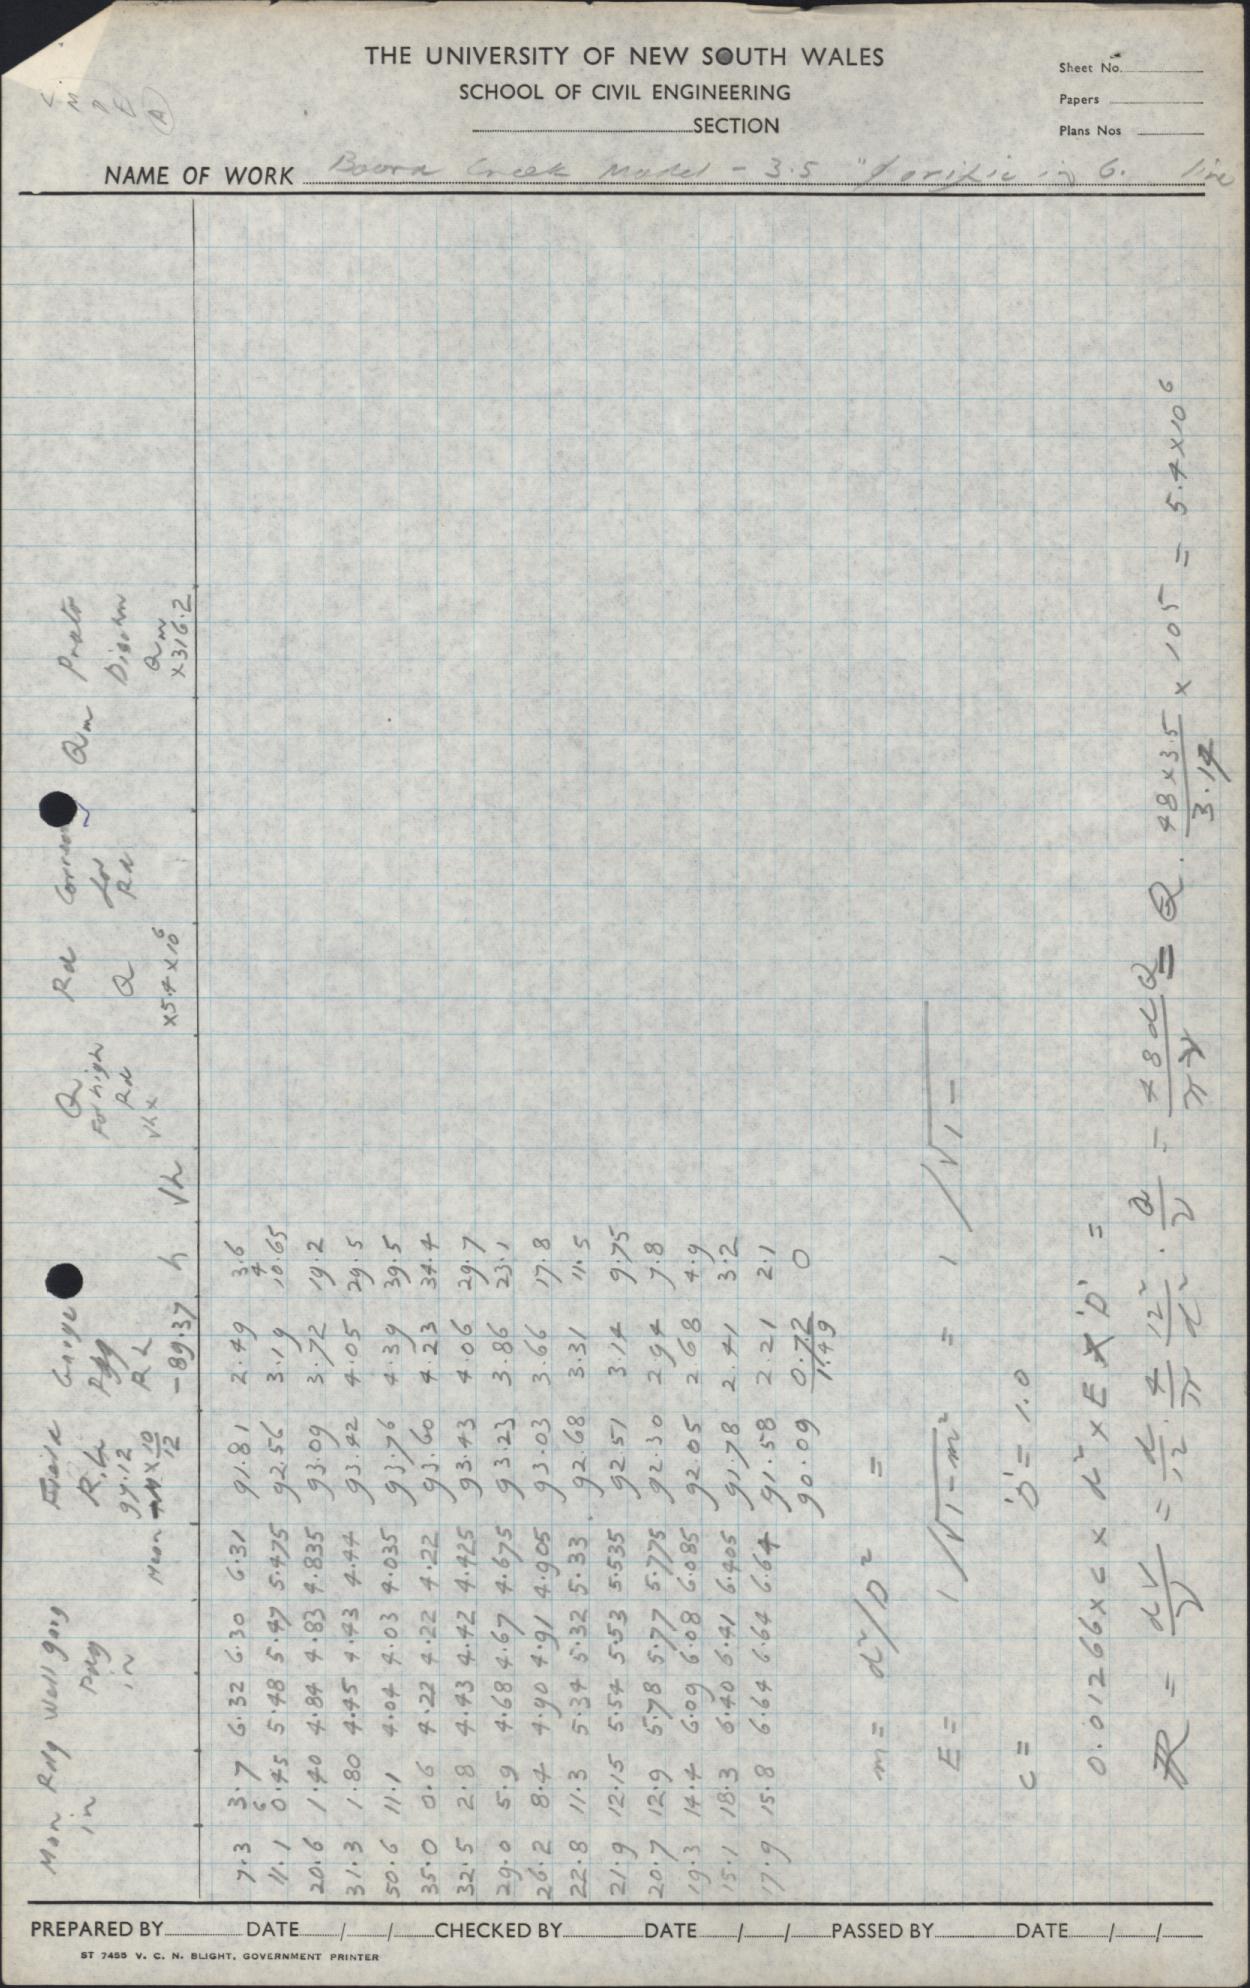 THE UNIVERSITY OF NEW SOUTH WALES
SCHOOL OF CIVIL ENGINEERING
SECTION
Sheet No.
Papers
Plans Nos
NAME OF WORK Creek Model - 3.5 "φ orifice in 6. line
Man Rdg Well gas Gauge h √h Q Rd Qm Proto
in Rdg R.L. Rdg For high Q for Dischm
in 97.12 R L Rd x5.4x10⁶ Rd Qm
Mean x 10/12 -89.37 √h x x316.2
7.3 3.7 6.32 6.30 6.31 91.81 2.49 3.6
11.1 0.45 5.48 5.47 5.475 92.56 3.19 10.65
20.6 1.40 4.84 4.83 4.835 93.09 3.72 19.2
31.3 1.80 4.45 4.43 4.44 93.42 4.05 29.5
50.6 11.1 4.04 4.03 4.035 93.76 4.39 39.5
35.0 0.6 4.22 4.22 4.22 93.60 4.23 34.4
32.5 2.8 4.43 4.42 4.425 93.43 4.06 29.7
29.0 5.9 4.68 4.67 4.675 93.23 3.86 23.1
26.2 8.4 4.90 4.91 4.905 93.03 3.66 17.8
22.8 11.3 5.34 5.32 5.33 92.68 3.31 11.5
21.9 12.15 5.54 5.53 5.535 92.51 3.14 9.75
20.7 12.9 5.78 5.77 5.775 92.30 2.94 7.8
19.3 14.4 6.09 6.08 6.085 92.05 2.68 4.9
15.1 18.3 6.40 6.41 6.405 91.78 2.41 3.2
17.9 15.8 6.64 6.64 6.64 91.58 2.21 2.1
90.09 0.72 0
1.49
m = d²/D² =
E = 1/√1-m² = 1/√1-
c = 'D' = 1.0
0.01266 x c x d² x E x 'D' =
R = dV/ν = d/12 . 4/π 12²/d² . Q/ν = 48 Q/πdν = Q . 48x3.5/3.14 x 10⁵ = 5.4x10⁶
PREPARED BY DATE / / CHECKED BY DATE / / PASSED BY DATE / /
ST 7455 V. C. N. BLIGHT, GOVERNMENT PRINTER